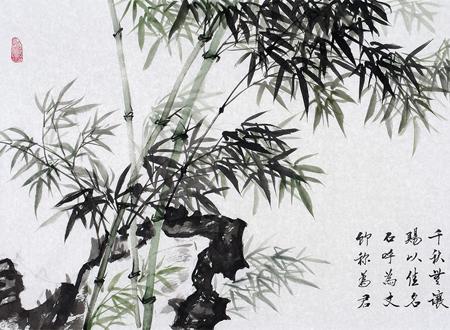 千秋無讓
賜以佳名
石呼為丈
竹称為君